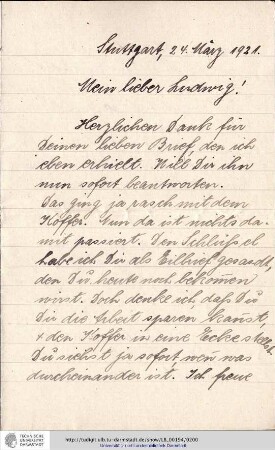 Stuttgart, 24. März 1921.
Mein lieber Ludwig!
Herzlichen Dank für
Deinen lieben Brief, den ich
eben erhielt. Will Dir ihn
nun sofort beantworten.
Das ging ja rasch mit dem
Koffer. Nun da ist nichts da-
mit passiert. Den Schlüssel
habe ich Dir als Eilbrief gesandt,
den Du heute noch bekom̅en
wirst. Doch denke ich daß Du
Dir die Arbeit sparen kannst,
+ den Koffer in eine Ecke stellst.
Du siehst ja sofort wen̅ was
durcheinander ist. Ich freue
TECHNISCHE
UNIVERSITÄT
DARMSTADT